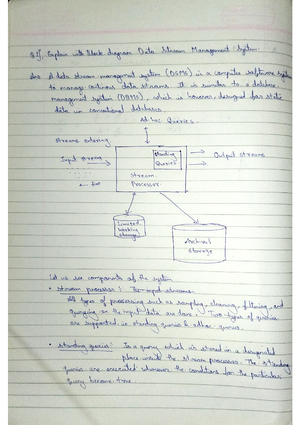 Q.1), Explain with block diagram Data Stream Management System.
Ans A data stream management system (DSMS) is a computer software system
to manage continous data streams. It is similar to a database
management system (DBMS), which is however, designed for static
data in conventional databases.
Ad-hoc Queries.
Streams entering
Input stream
Standing
Queries
Output streams
Stream
Processor
Limited
working
storage
Archival
storage
Let us see components of the system
• stream processor : The input streams.
All types of processing such as sampling, cleaning, filtering, and
querying on the input data are done. Two types of queries
are supported i.e standing queries & adhoc queries.
• standing queries: Is a query which is stored in a designated
place inside the stream processor. The standing
queries are executed whenever the conditions for the particular
query become true